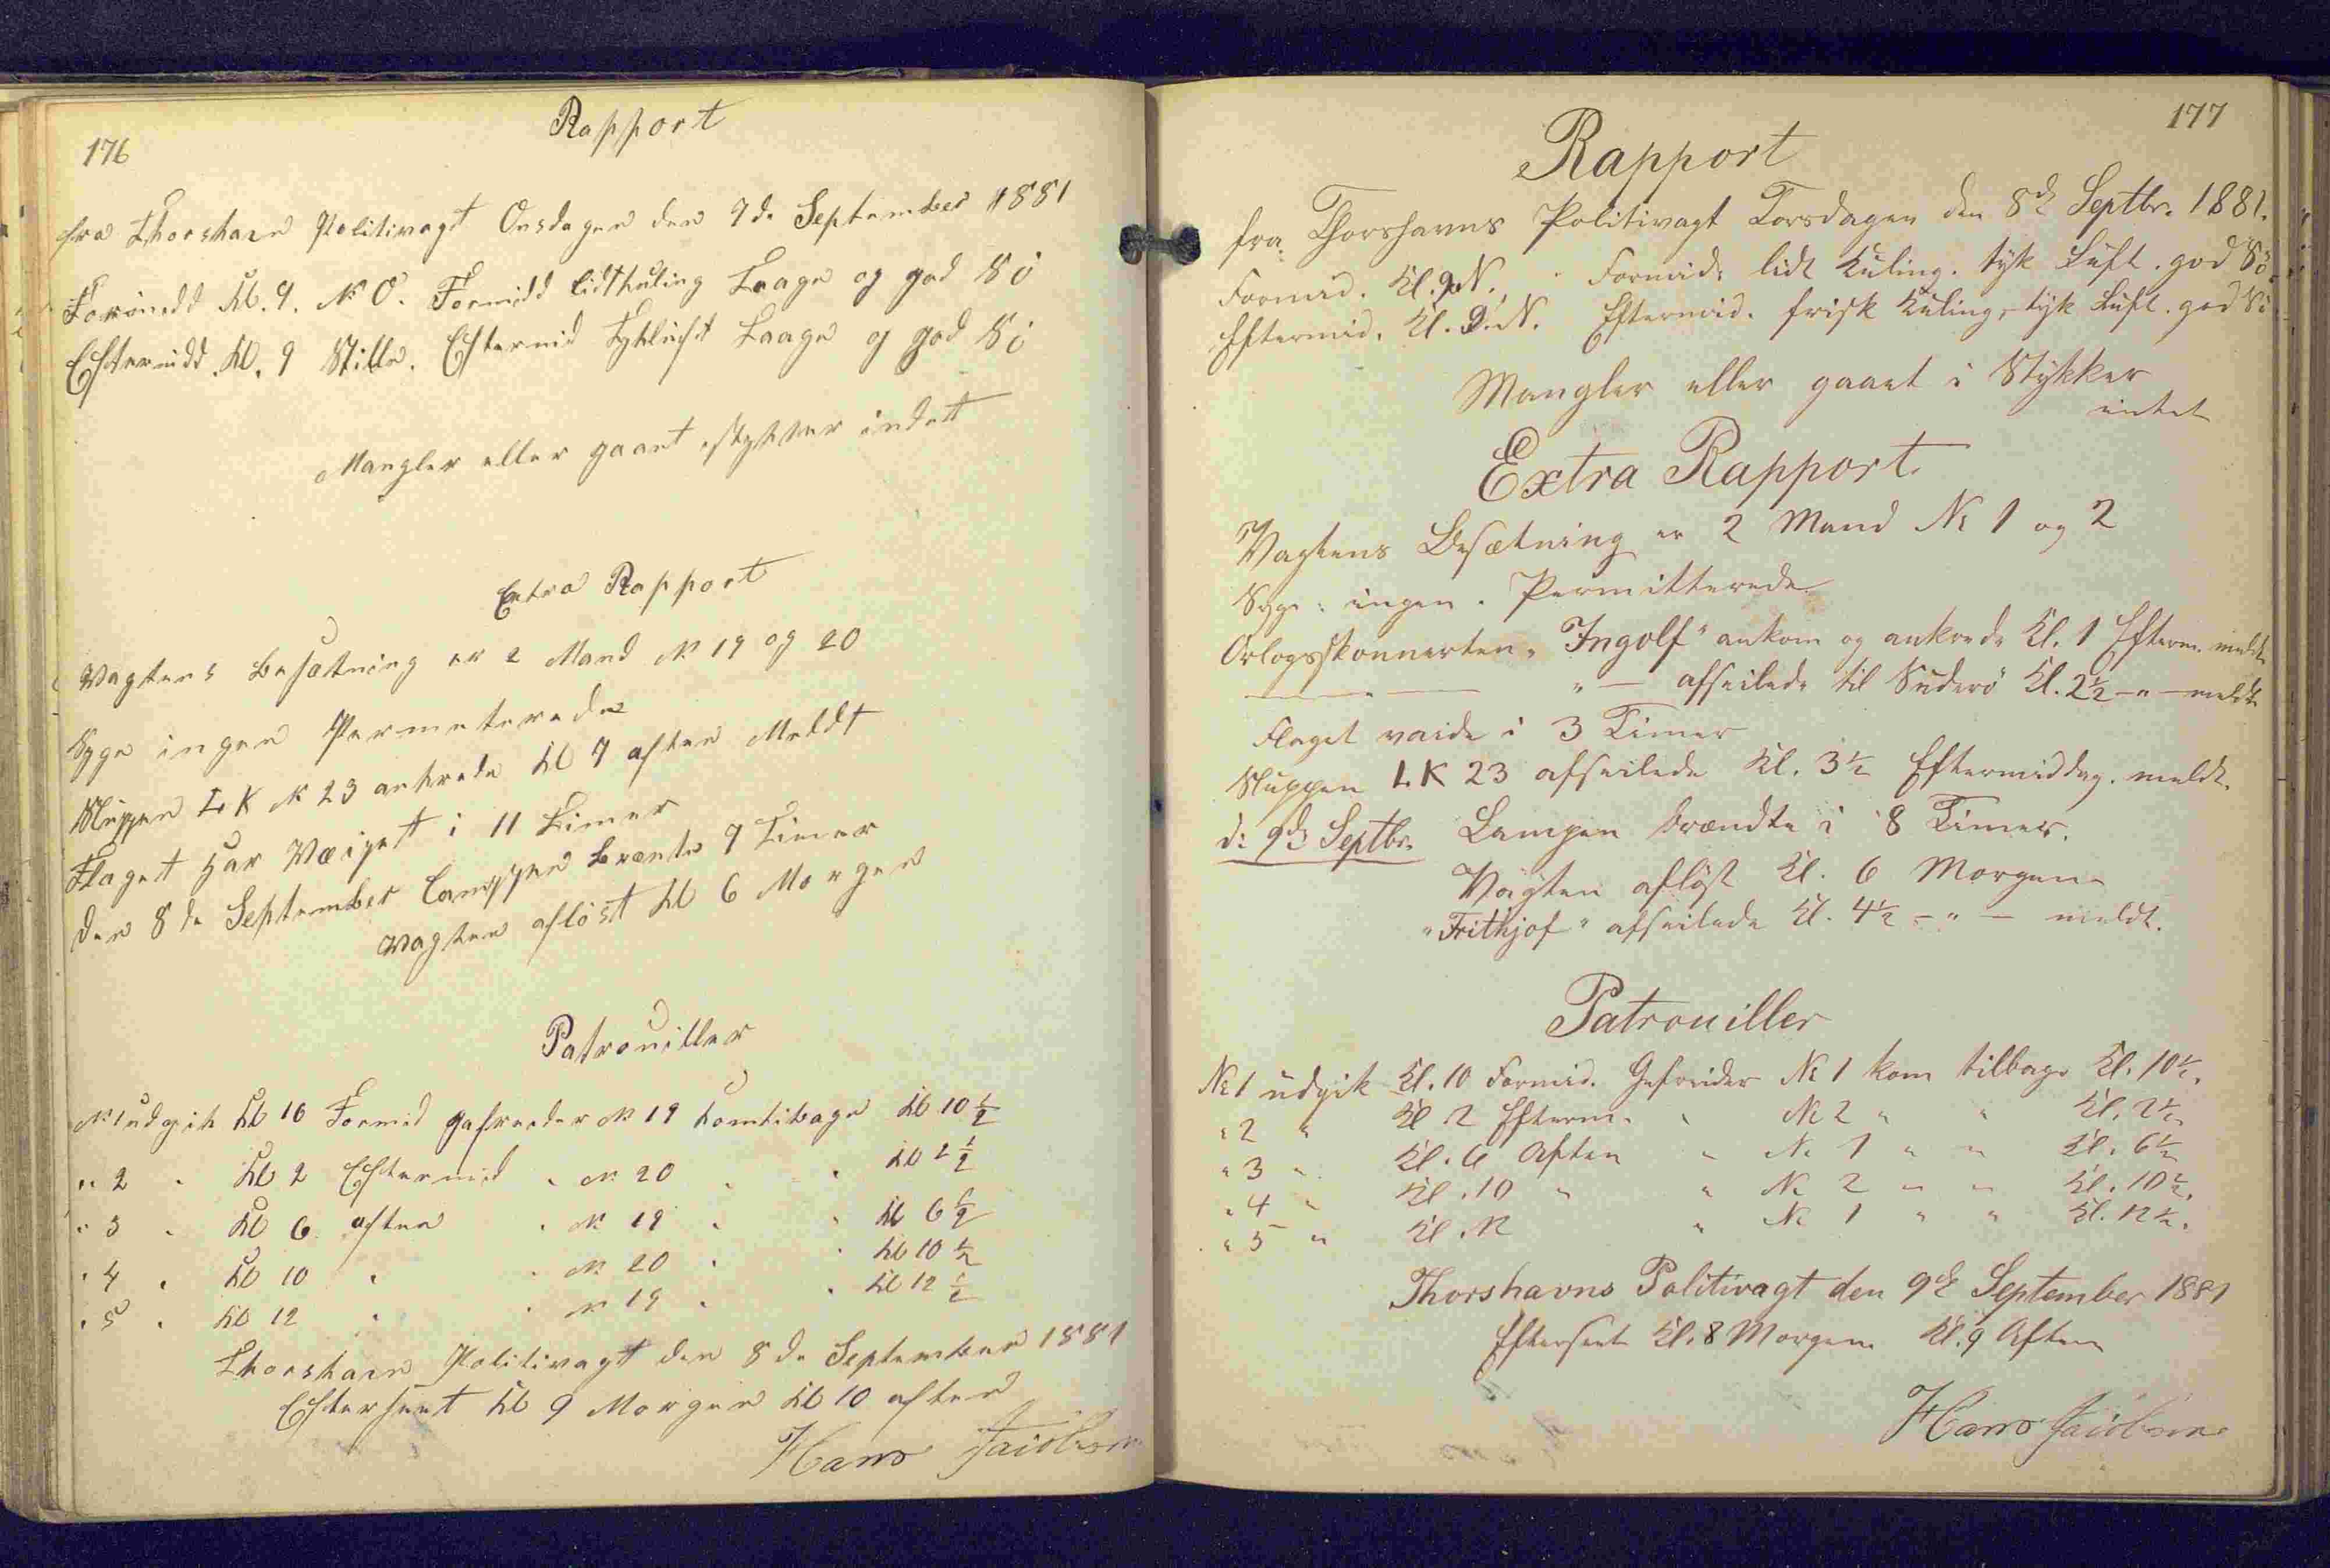 176
Rapport
fra Thorshavn Politivagt Onsdagen den 7de September 1881
Formidd Kl. 9. N O. Formidd lidtkuling Taage og god Sö
Eftermidd. Kl. 9 Stille. Eftermid Tykluft Taage og god Sö
Mangler eller gaaet istykker indet
Extra Rapport
Vagtens besætning er 2 Mand No 19 og 20
Syge ingen Permeterede
Sluppen L K No 23 ankrede Kl 7 aften Meldt
Flaget Har Væiget i 11 Timer
Den 8de September Lamppen brænte 9 Timer
Vagten aflöst Kl 6 Morgen
Patrouiller
No 1 udgik Kl 10 Formid gefreeder No 19 komtibage Kl 10 1/2
" 2 " Kl 2 Eftermid " No 20 " " Kl 2 1/2
" 3 " Kl 6 aften " No 19 " " Kl 6 1/2
" 4 " Kl 10 " " No 20 " " Kl 10 1/2
" 5 " Kl 12 " " No 19 " " Kl 12 1/2
Thorshavn Politivagt den 8de September 1881
Efterseet Kl 9 Morgen Kl 10 aften
Hans Jacobsen
177
Rapport
fra Thorshavns Politivagt Torsdagen den 8de Septbr. 1881.
Formid. Kl. 9. N. Formid. lidt Kuling. tyk Luft. god Sö.
Eftermid. Kl. 9. N. Eftermid. frisk Kuling, tyk Luft. god Sö
Mangler eller gaaet i Stykker
intet
Extra Rapport.
Vagtens Besætning er 2 Mand No 1 og 2
Syge: ingen. Permitterede
Orlogsskonnerten "Ingolf" ankom og ankrede Kl. 1 Efterm. meldt.
— " — " — afseilede til Suderö Kl. 2 1/2 — " — meldt.
Flaget vaide i 3 Timer
Sluppen L.K 23 afseilede Kl. 3 1/2 Eftermiddag. meldt.
d: 9de Septbr. Lampen brændte i 8 Timer.
Vagten aflöst Kl. 6 Morgen.
"Frithjof" afseilede Kl. 4 1/2 — " — meldt.
Patrouiller
No 1 udgik Kl. 10 Formid. Gefreider No 1 kom tilbage Kl. 10 1/2.
" 2 " Kl 2 Efterm. " No 2 " " Kl. 2 1/2
" 3 " Kl. 6 Aften " No 1 " " Kl. 6 1/2
" 4 " Kl. 10 " " No 2 " " Kl. 10 1/2.
" 5 " Kl. 12 " No 1 " " Kl. 12 1/2.
Thorshavns Politivagt den 9de September 1881
Efterseet Kl. 8 Morgen Kl. 9 Aften
Hans Jacobsen